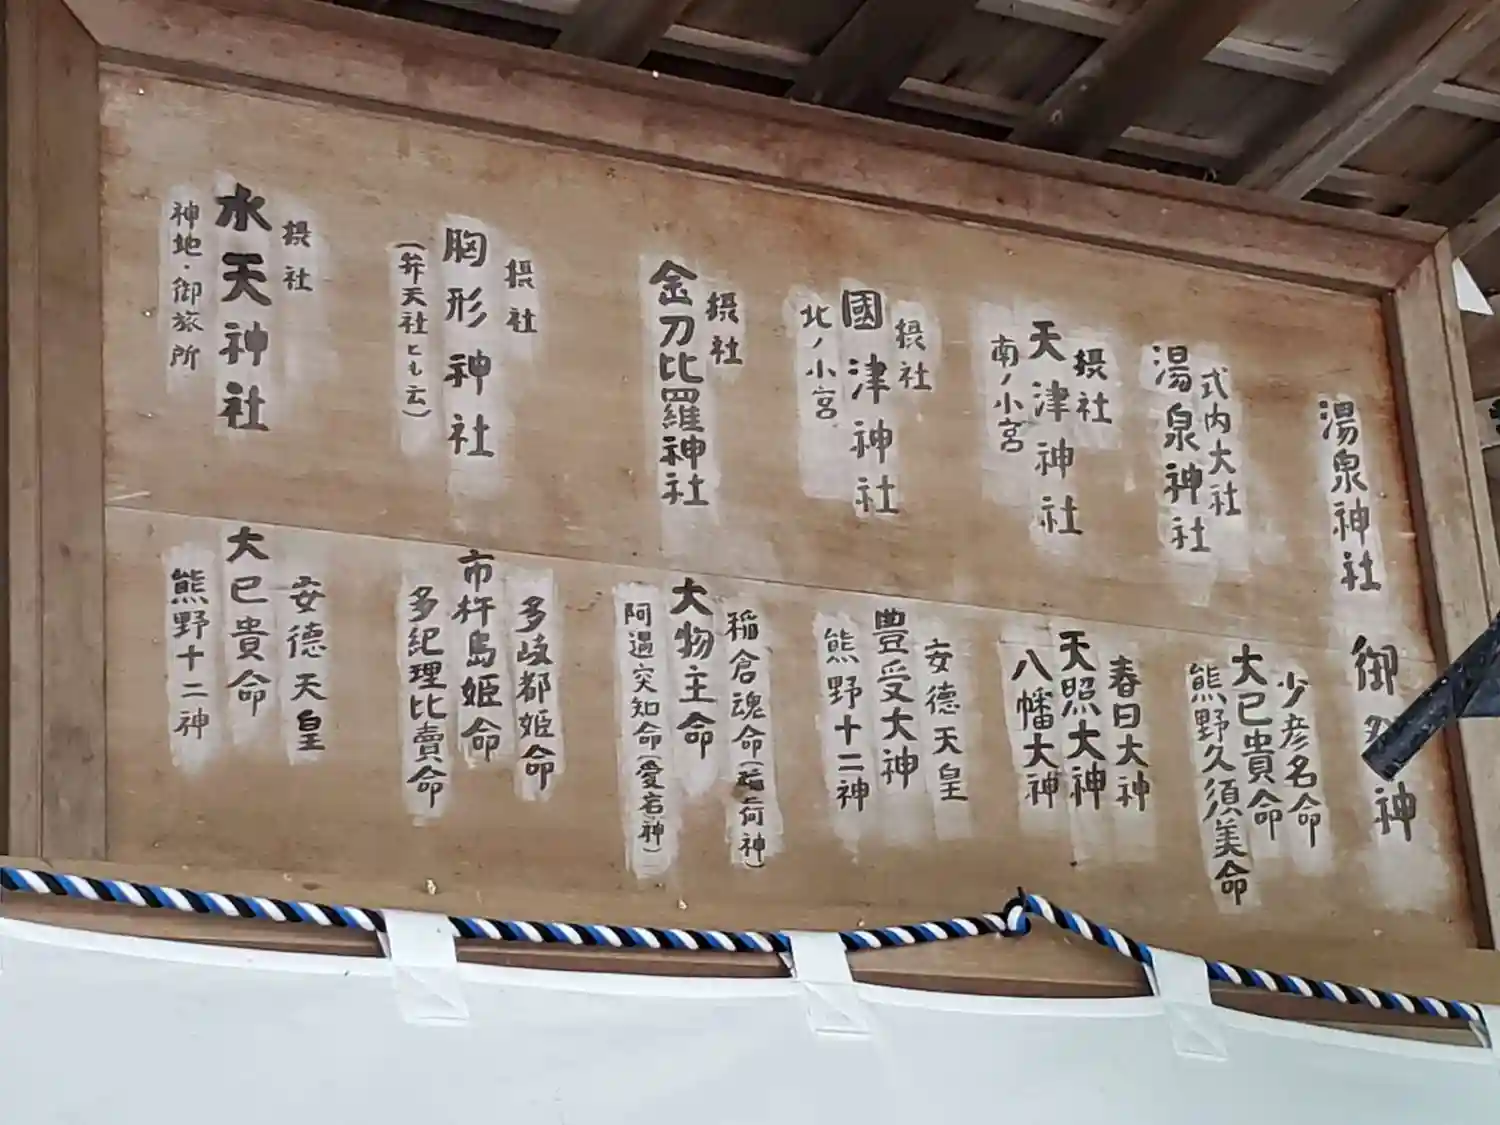 湯泉神社
御 神
式内大社
湯泉神社
少彦名命
大已貴命
熊野久須美命
摂社
天津神社
南ノ小宮
春日大神
天照大神
八幡大神
摂社
國津神社
北ノ小宮
安德天皇
豊受大神
熊野十二神
摂社
金刀比羅神社
稲倉魂命(稲荷神)
大物主命
阿遏突知命(愛宕神)
摂社
胸形神社
(弁天社とも云)
多岐都姫命
市杵島姫命
多紀理比賣命
摂社
水天神社
神地・御旅所
安德天皇
大已貴命
熊野十二神